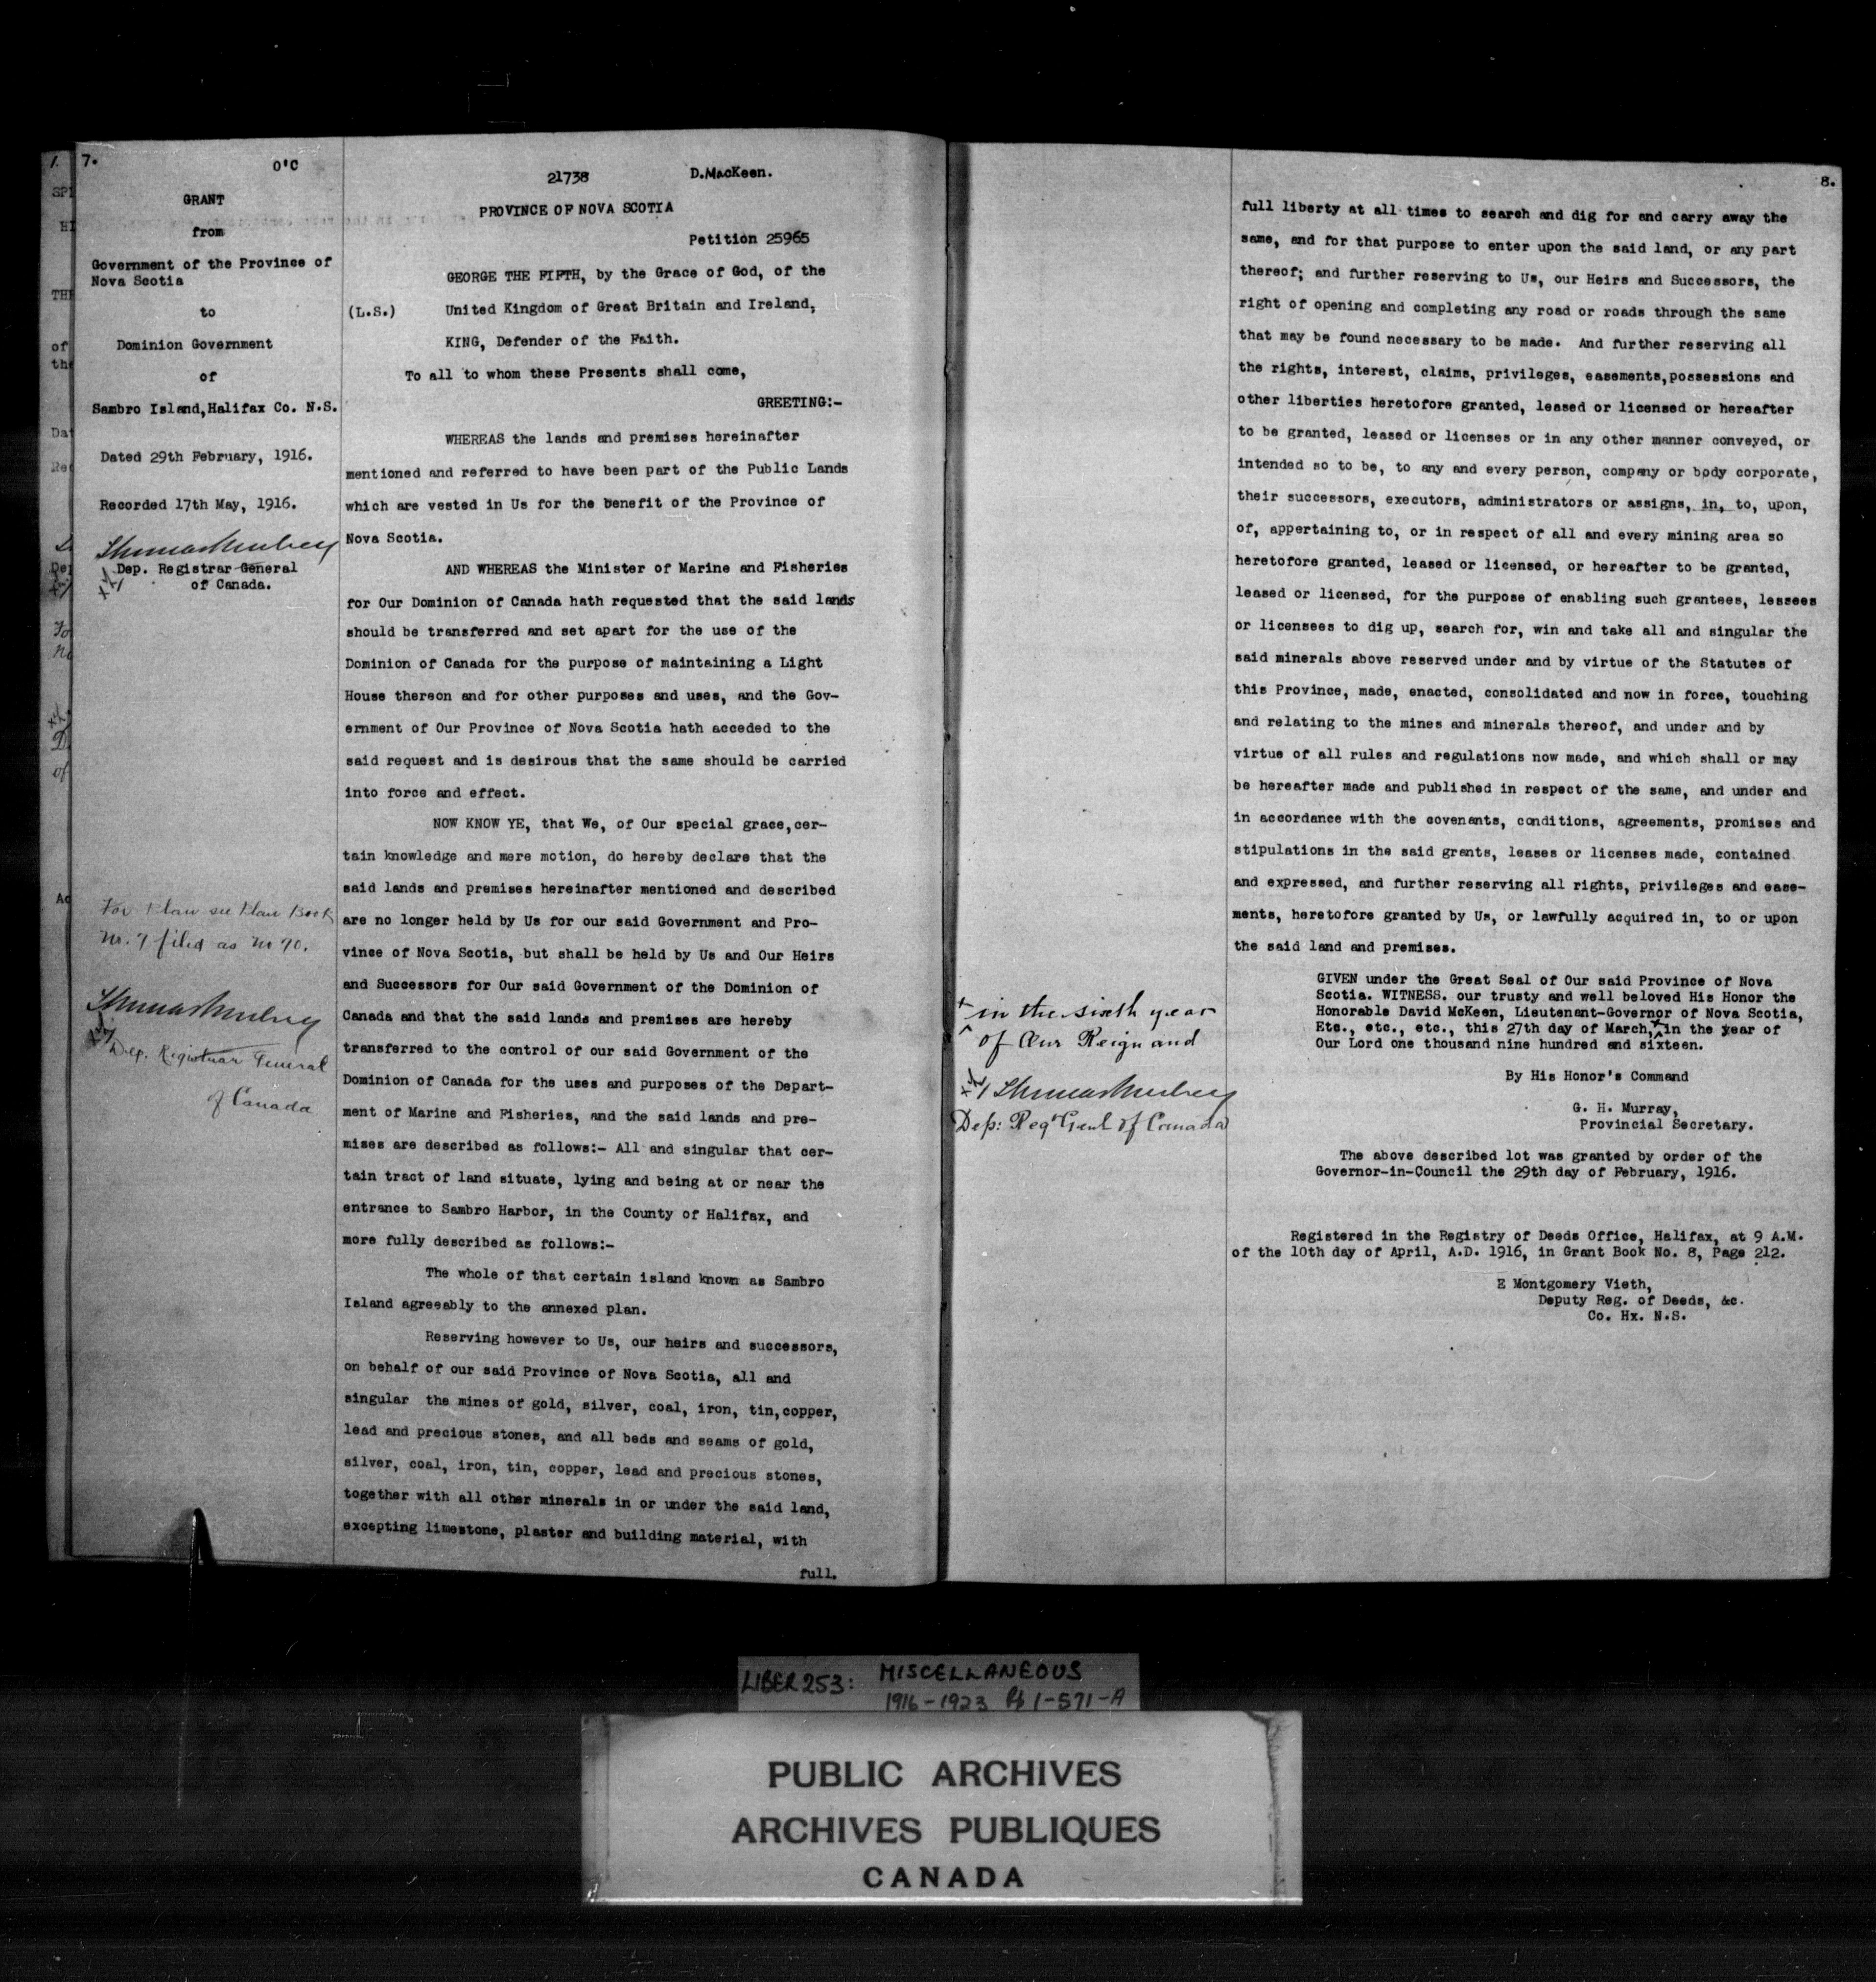 7.
O'C
GRANT
from
Government of the Province of
Nova Scotia
to
Dominion Government
of
Sambro Island,Halifax Co. N.S.
Dated 29th February, 1916.
Recorded 17th May, 1916.
Dep. Registrar General
of Canada.
For Plan see Plan Book
No. 7 filed as No 70.
Dep. Registrar General
of Canada
21738
D.MacKeen.
PROVINCE OF NOVA SCOTIA
Petition 25965
GEORGE THE FIFTH, by the Grace of God, of the
(L.S.) United Kingdom of Great Britain and Ireland,
KING, Defender of the Faith.
To all to whom these Presents shall come,
GREETING:-
WHEREAS the lands and premises hereinafter
mentioned and referred to have been part of the Public Lands
which are vested in Us for the benefit of the Province of
Nova Scotia.
AND WHEREAS the Minister of Marine and Fisheries
for Our Dominion of Canada hath requested that the said lands
should be transferred and set apart for the use of the
Dominion of Canada for the purpose of maintaining a Light
House thereon and for other purposes and uses, and the Gov-
ernment of Our Province of Nova Scotia hath acceded to the
said request and is desirous that the same should be carried
into force and effect.
NOW KNOW YE, that We, of Our special grace,cer-
tain knowledge and mere motion, do hereby declare that the
said lands and premises hereinafter mentioned and described
are no longer held by Us for our said Government and Pro-
vince of Nova Scotia, but shall be held by Us and Our Heirs
and Successors for Our said Government of the Dominion of
Canada and that the said lands and premises are hereby
transferred to the control of our said Government of the
Dominion of Canada for the uses and purposes of the Depart-
ment of Marine and Fisheries, and the said lands and pre-
mises are described as follows:- All and singular that cer-
tain tract of land situate, lying and being at or near the
entrance to Sambro Harbor, in the County of Halifax, and
more fully described as follows:-
The whole of that certain island known as Sambro
Island agreeably to the annexed plan.
Reserving however to Us, our heirs and successors,
on behalf of our said Province of Nova Scotia, all and
singular the mines of gold, silver, coal, iron, tin,copper,
lead and precious stones, and all beds and seams of gold,
silver, coal, iron, tin, copper, lead and precious stones,
together with all other minerals in or under the said land,
excepting limestone, plaster and building material, with
full.
8.
full liberty at all times to search and dig for and carry away the
same, and for that purpose to enter upon the said land, or any part
thereof; and further reserving to Us, our Heirs and Successors, the
right of opening and completing any road or roads through the same
that may be found necessary to be made. And further reserving all
the rights, interest, claims, privileges, easements,possessions and
other liberties heretofore granted, leased or licensed or hereafter
to be granted, leased or licenses or in any other manner conveyed, or
intended so to be, to any and every person, company or body corporate,
their successors, executors, administrators or assigns, in, to, upon,
of, appertaining to, or in respect of all and every mining area so
heretofore granted, leased or licensed, or hereafter to be granted,
leased or licensed, for the purpose of enabling such grantees, lessees
or licensees to dig up, search for, win and take all and singular the
said minerals above reserved under and by virtue of the Statutes of
this Province, made, enacted, consolidated and now in force, touching
and relating to the mines and minerals thereof, and under and by
virtue of all rules and regulations now made, and which shall or may
be hereafter made and published in respect of the same, and under and
in accordance with the covenants, conditions, agreements, promises and
stipulations in the said grants, leases or licenses made, contained
and expressed, and further reserving all rights, privileges and ease-
ments, heretofore granted by Us, or lawfully acquired in, to or upon
the said land and premises.
GIVEN under the Great Seal of Our said Province of Nova
Scotia. WITNESS. our trusty and well beloved His Honor the
Honorable David McKeen, Lieutenant-Governor of Nova Scotia,
Etc., etc., etc., this 27th day of March, in the year of
Our Lord one thousand nine hundred and sixteen.
in the sixth year
of Our Reign and
Dep: Reg Genl of Canada
By His Honor's Command
G. H. Murray,
Provincial Secretary.
The above described lot was granted by order of the
Governor-in-Council the 29th day of February, 1916.
Registered in the Registry of Deeds Office, Halifax, at 9 A.M.
of the 10th day of April, A.D. 1916, in Grant Book No. 8, Page 212.
E Montgomery Vieth,
Deputy Reg. of Deeds, &c.
Co. Hx. N.S.
LIBER 253: MISCELLANEOUS
1916-1923 Pg 1-571-A
PUBLIC ARCHIVES
ARCHIVES PUBLIQUES
CANADA